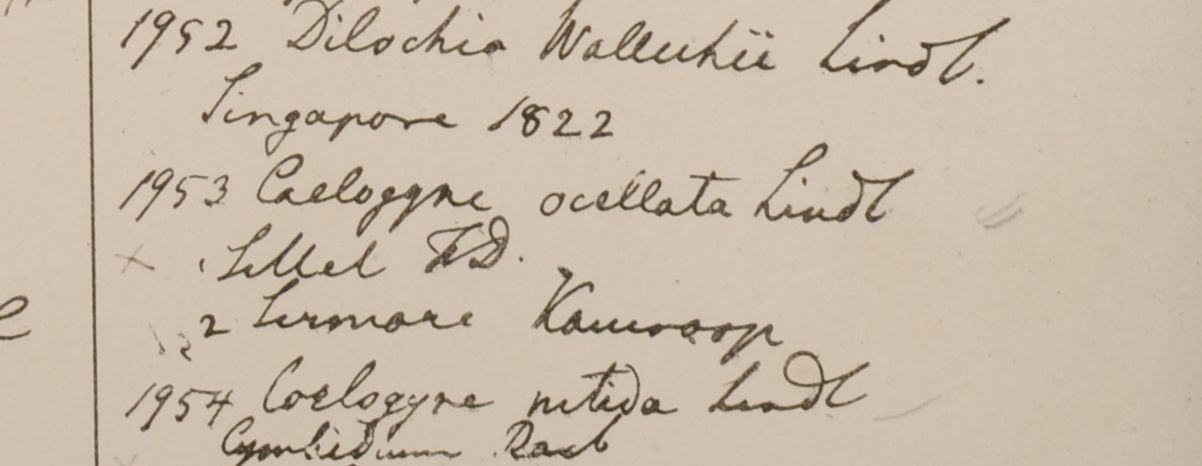 1952 Dilochia Wallichii Lindl.
Singapore 1822
1953 Caelogyne ocellata Lindl
Sillet
2 Sirmore Kamroop
1954 Coelogyne nitida Lindl
Cymbidium